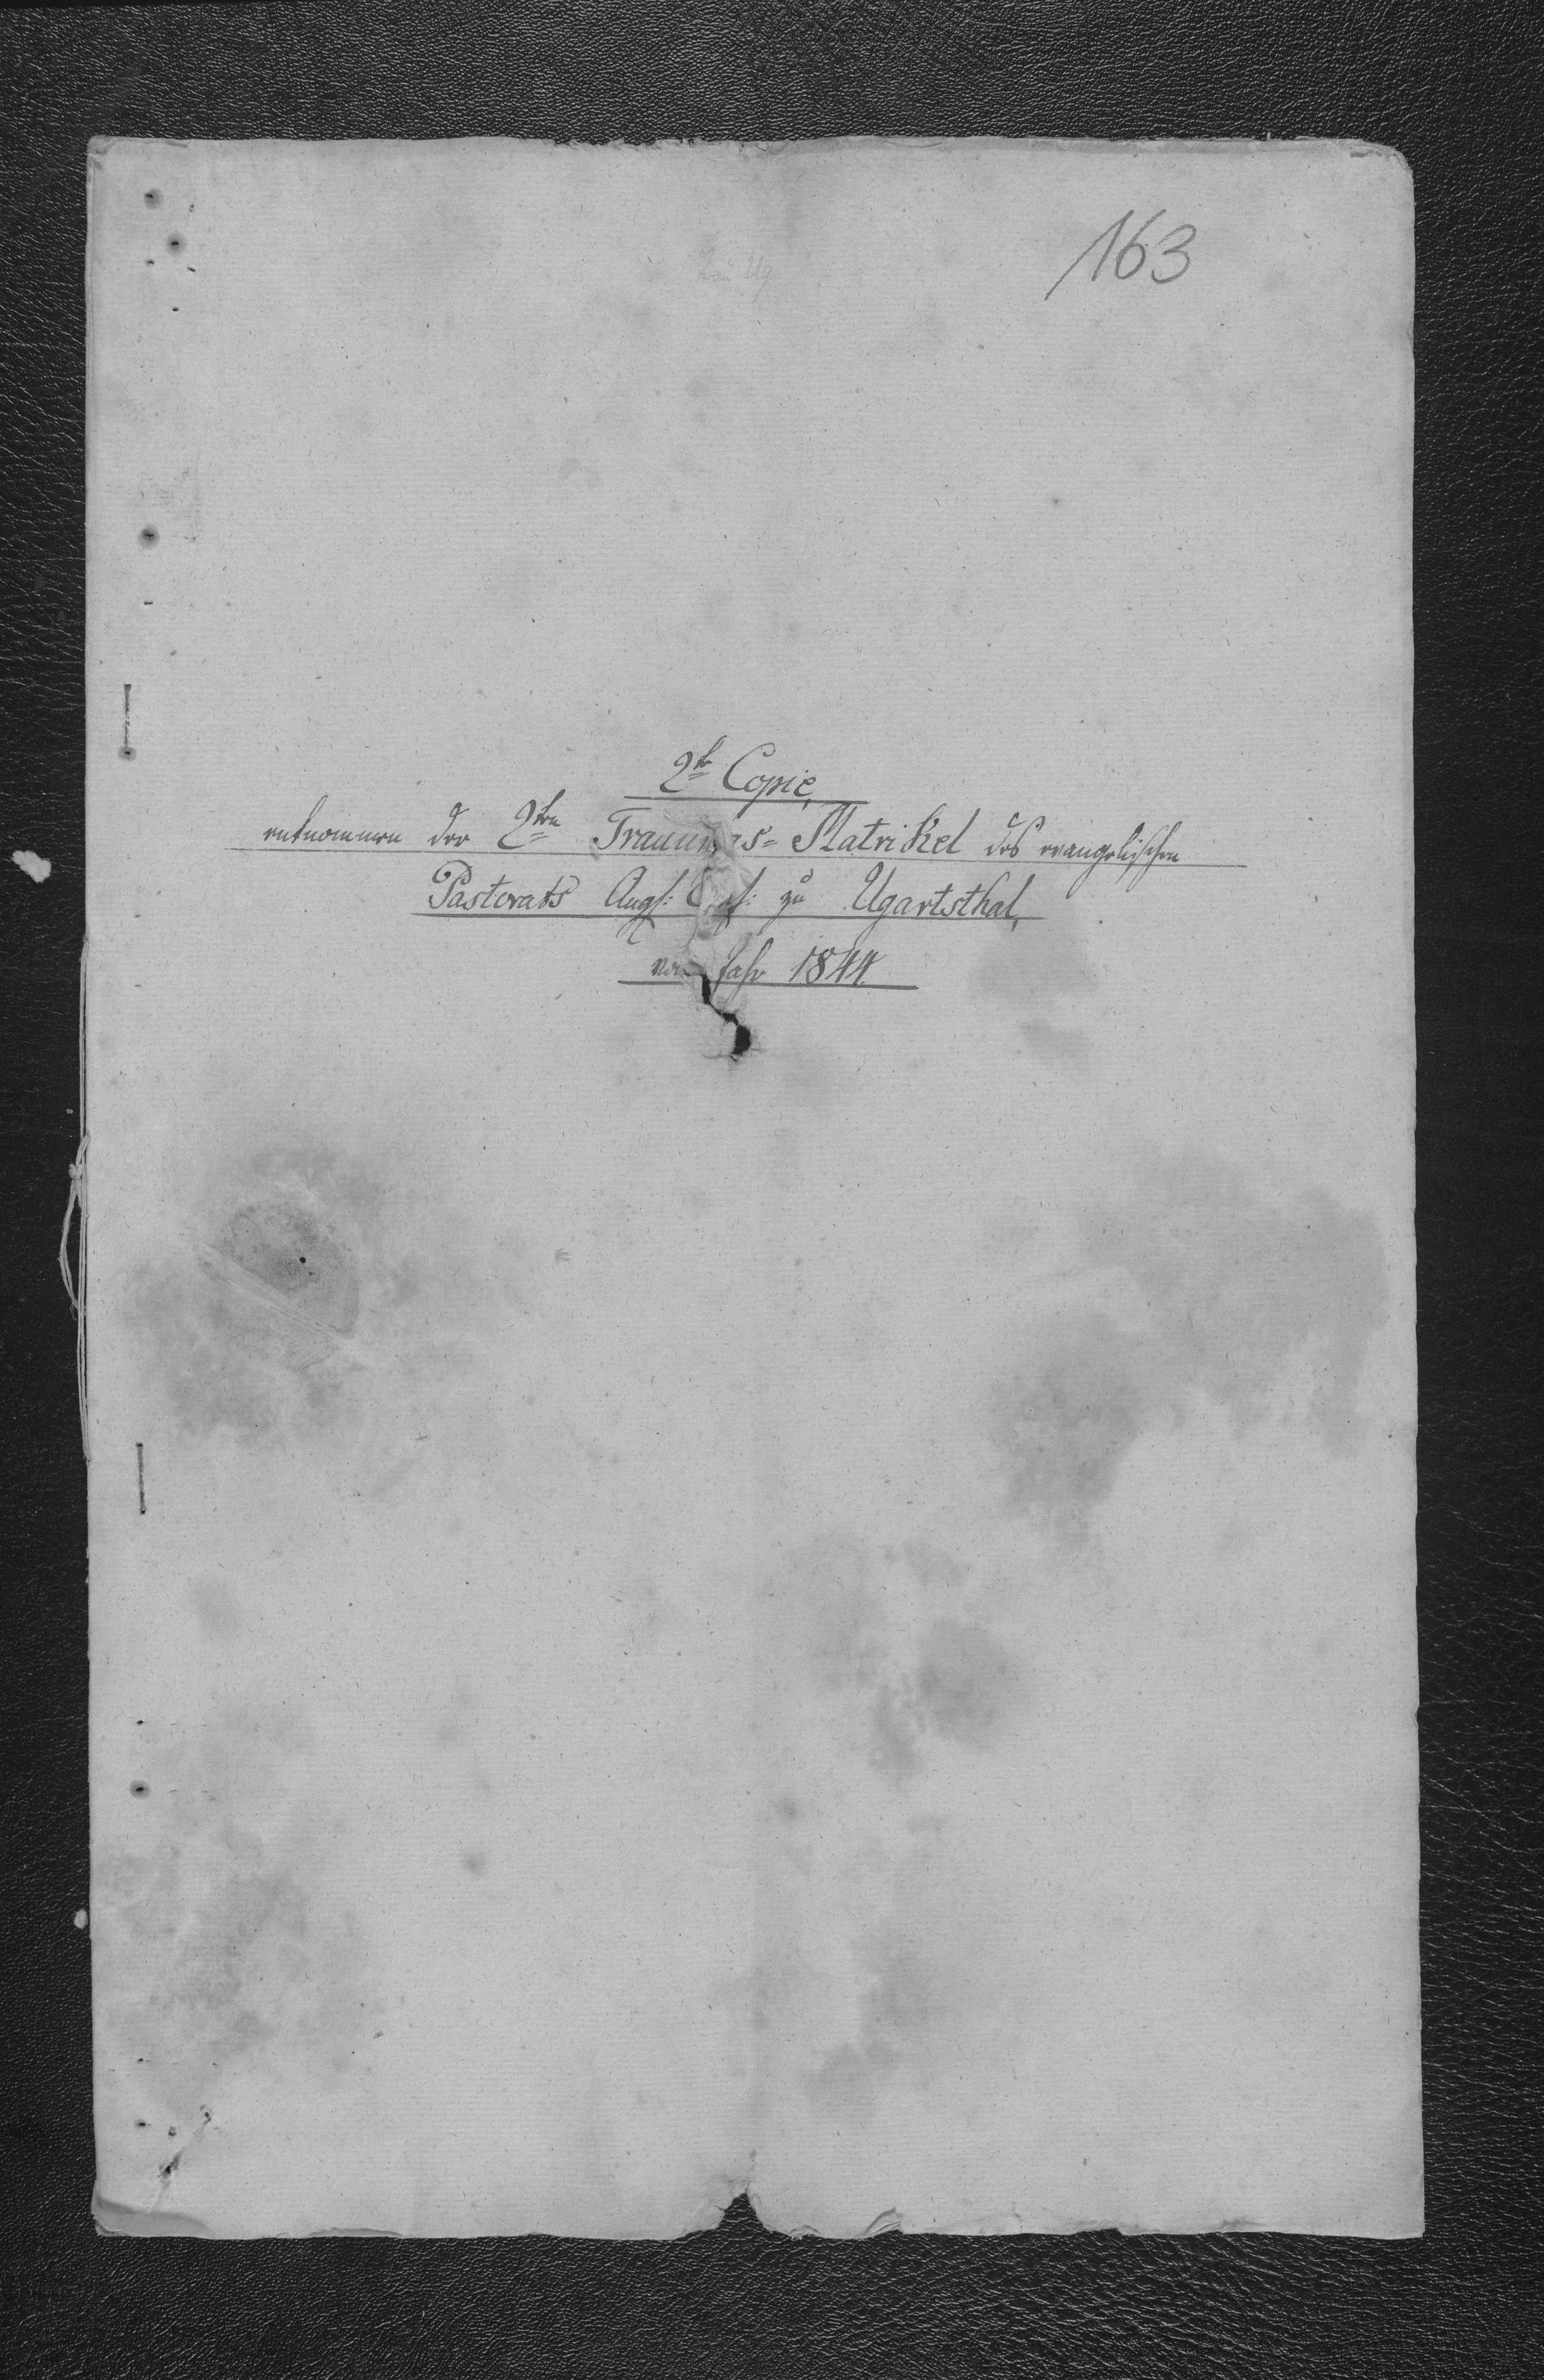 163
2te Copie,
entnommen der 2ten Trauungs- Matrikel des evangelischen
Pastorats Augs: Conf: zu Ugartsthal,
vom Jahr 1844.